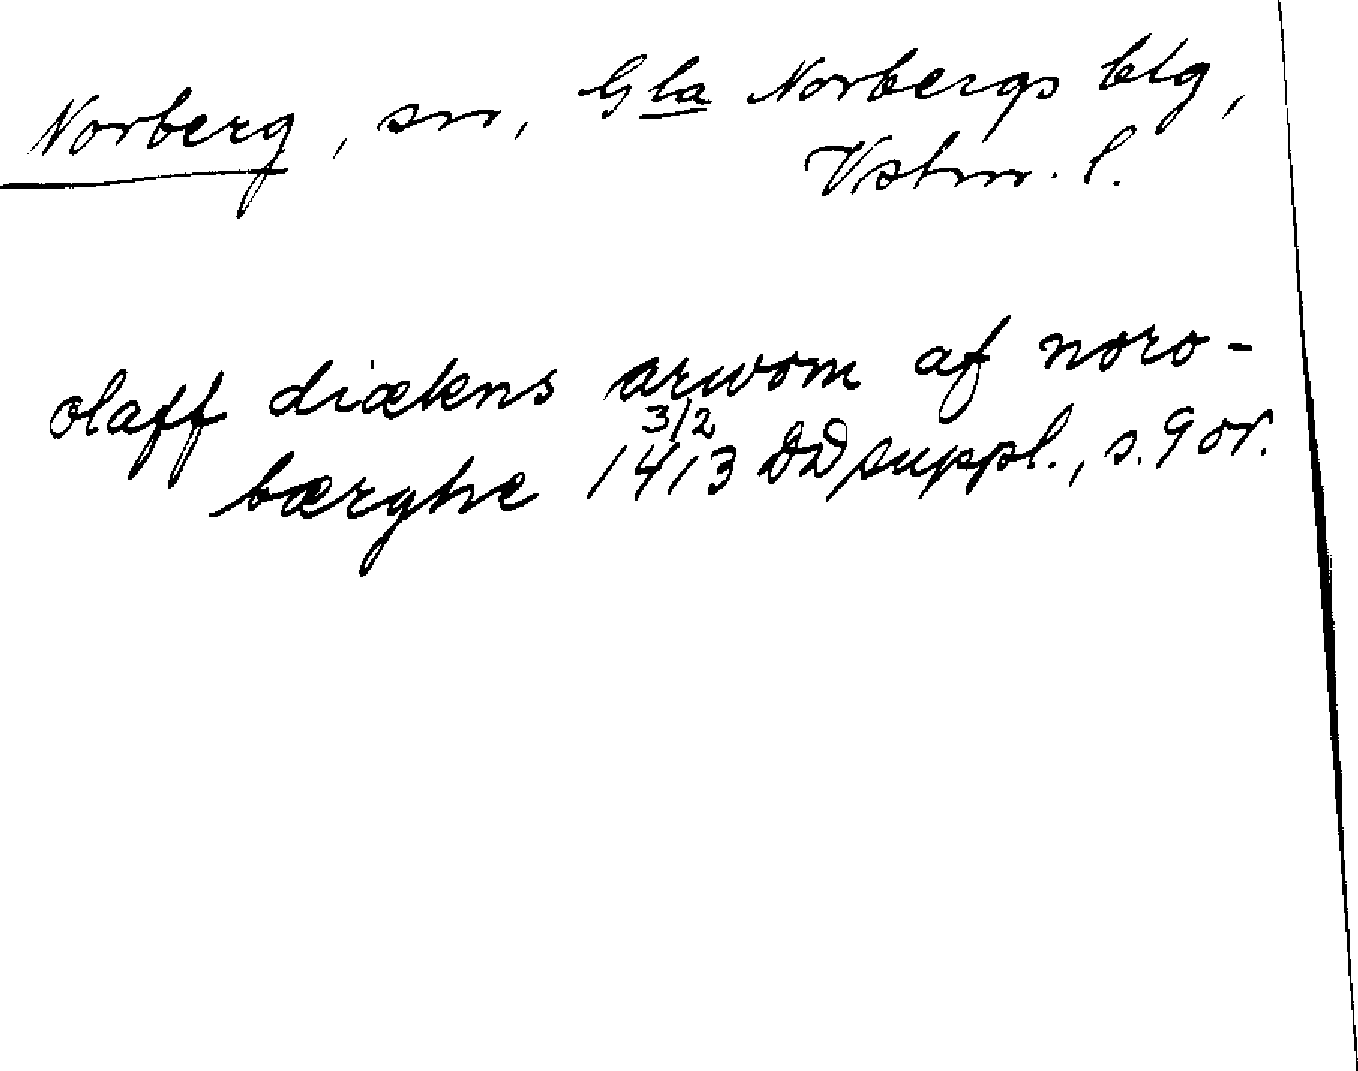 Norberg, sn, Gla Norbergs blg,
Vstm. l.
olaff diækns arwom af noro-
bærghe 1413 3/2 DD suppl., s. 9 or.